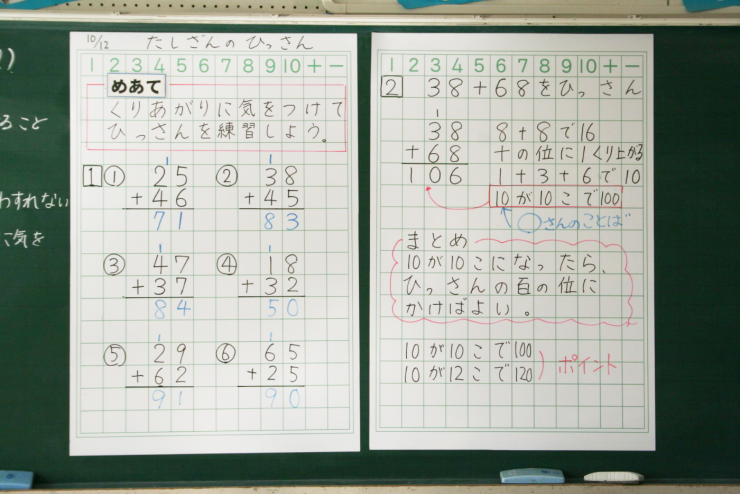 ること
わすれない
に気を
10/12 たしざんのひっさん
1 2 3 4 5 6 7 8 9 10 + −
めあて
くりあがりに気をつけて
ひっさんを練習しよう。
1 ① 25 ② 38
+46 +45
71 83
③ 47 ④ 18
+37 +32
84 50
⑤ 29 ⑥ 65
+62 +25
91 90
1 2 3 4 5 6 7 8 9 10 + −
2 38+68をひっさん
1
38 8+8で16
+68 十の位に1くり上がる
106 1+3+6で10
10が10こで100
○さんのことば
まとめ
10が10こになったら、
ひっさんの百の位に
かけばよい。
10が10こで100
10が12こで120
ポイント